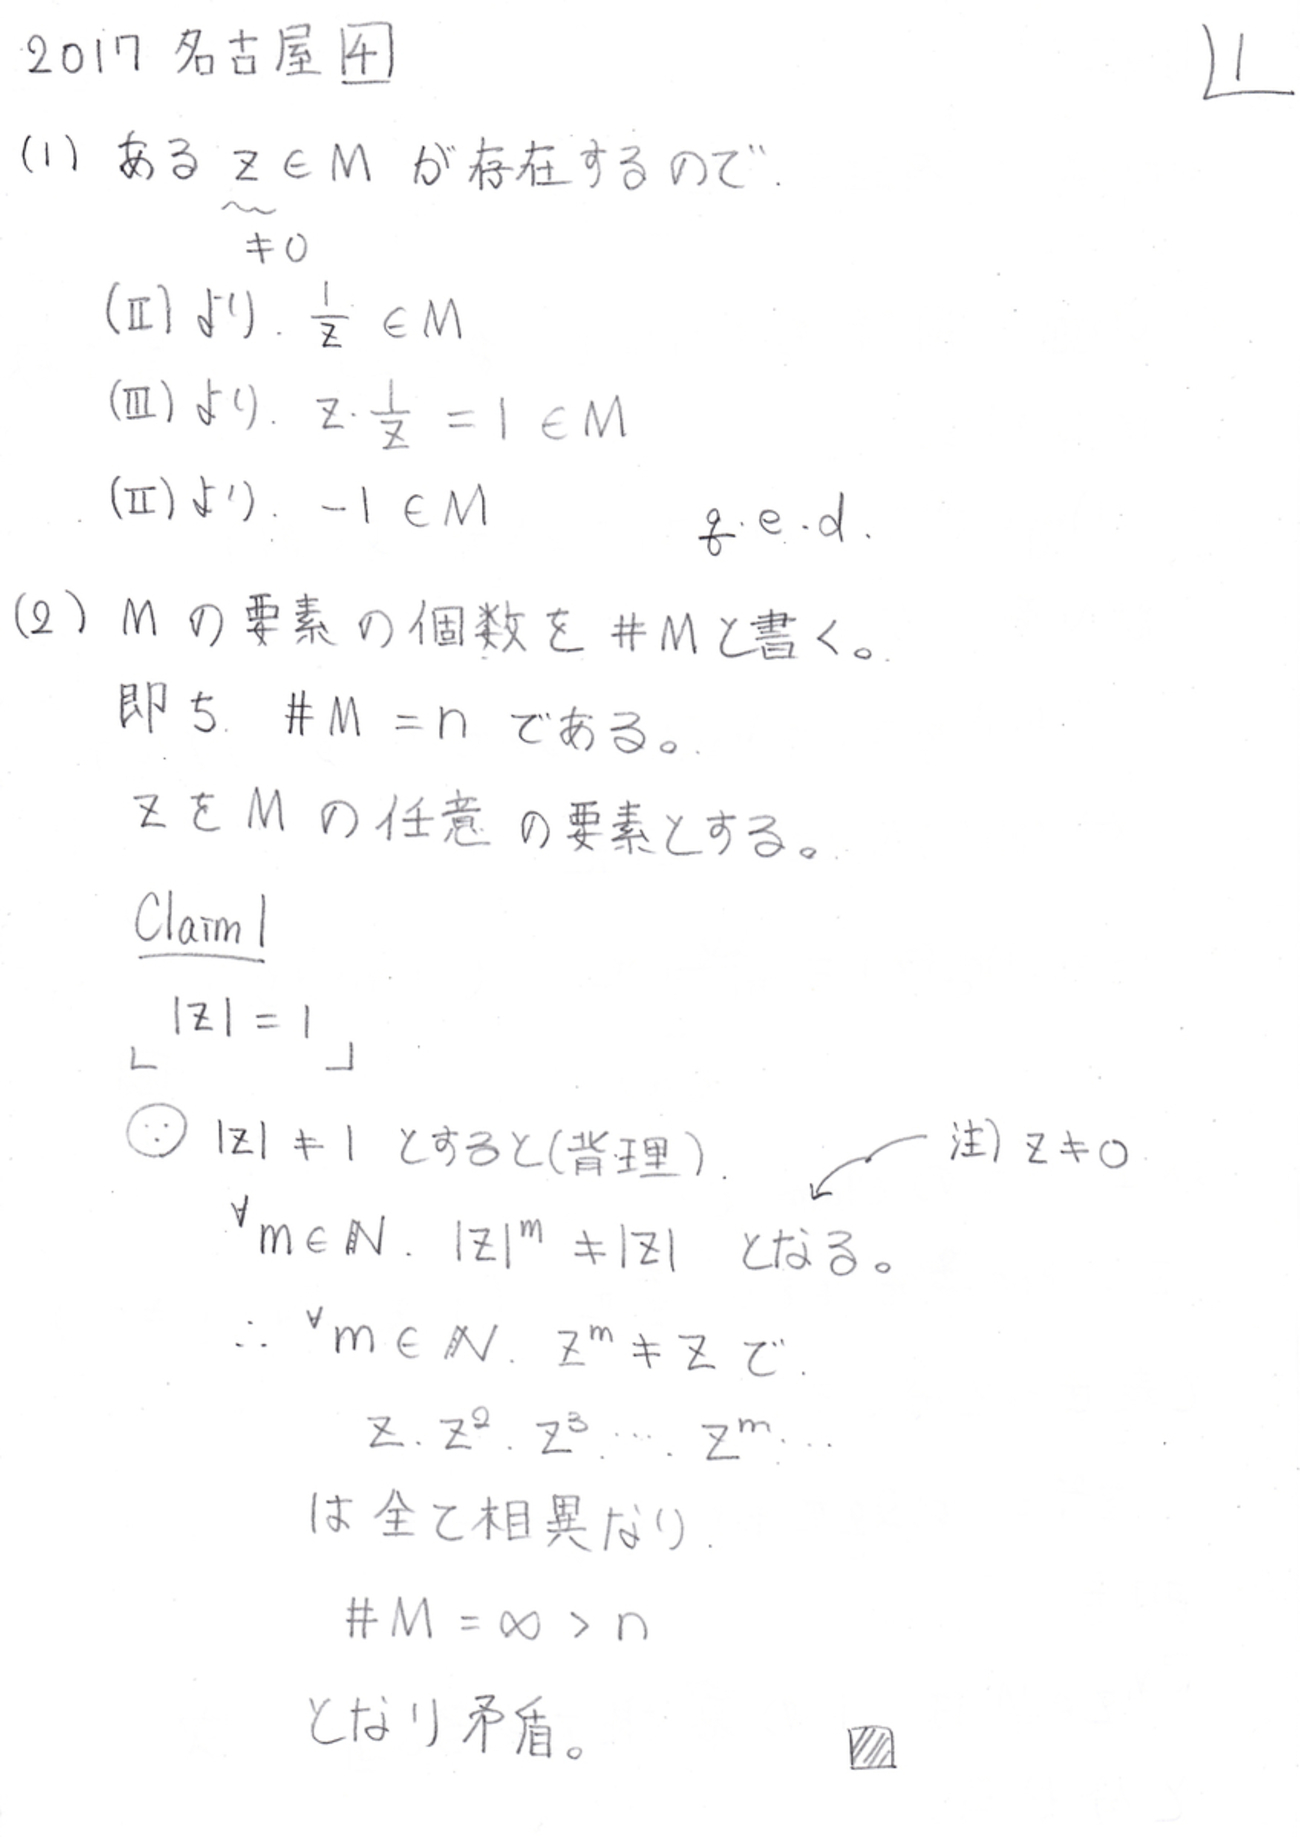 2017 名古屋 4
1
(1) ある z ∈ M が存在するので.
≠0
(II) より. 1/z ∈ M
(III) より. z・1/z = 1 ∈ M
(II) より. -1 ∈ M q.e.d.
(2) M の 要素 の 個数を #M と書く。
即ち. #M = n である。
z を M の 任意 の要素とする。
Claim 1
|z| = 1
∵ |z| ≠ 1 とすると(背理).
注) z ≠ 0
∀m ∈ ℕ. |z|^m ≠ |z| となる。
∴ ∀m ∈ ℕ. z^m ≠ z で.
z. z^2. z^3. …. z^m. …
は 全て相異なり.
#M = ∞ > n
となり矛盾。